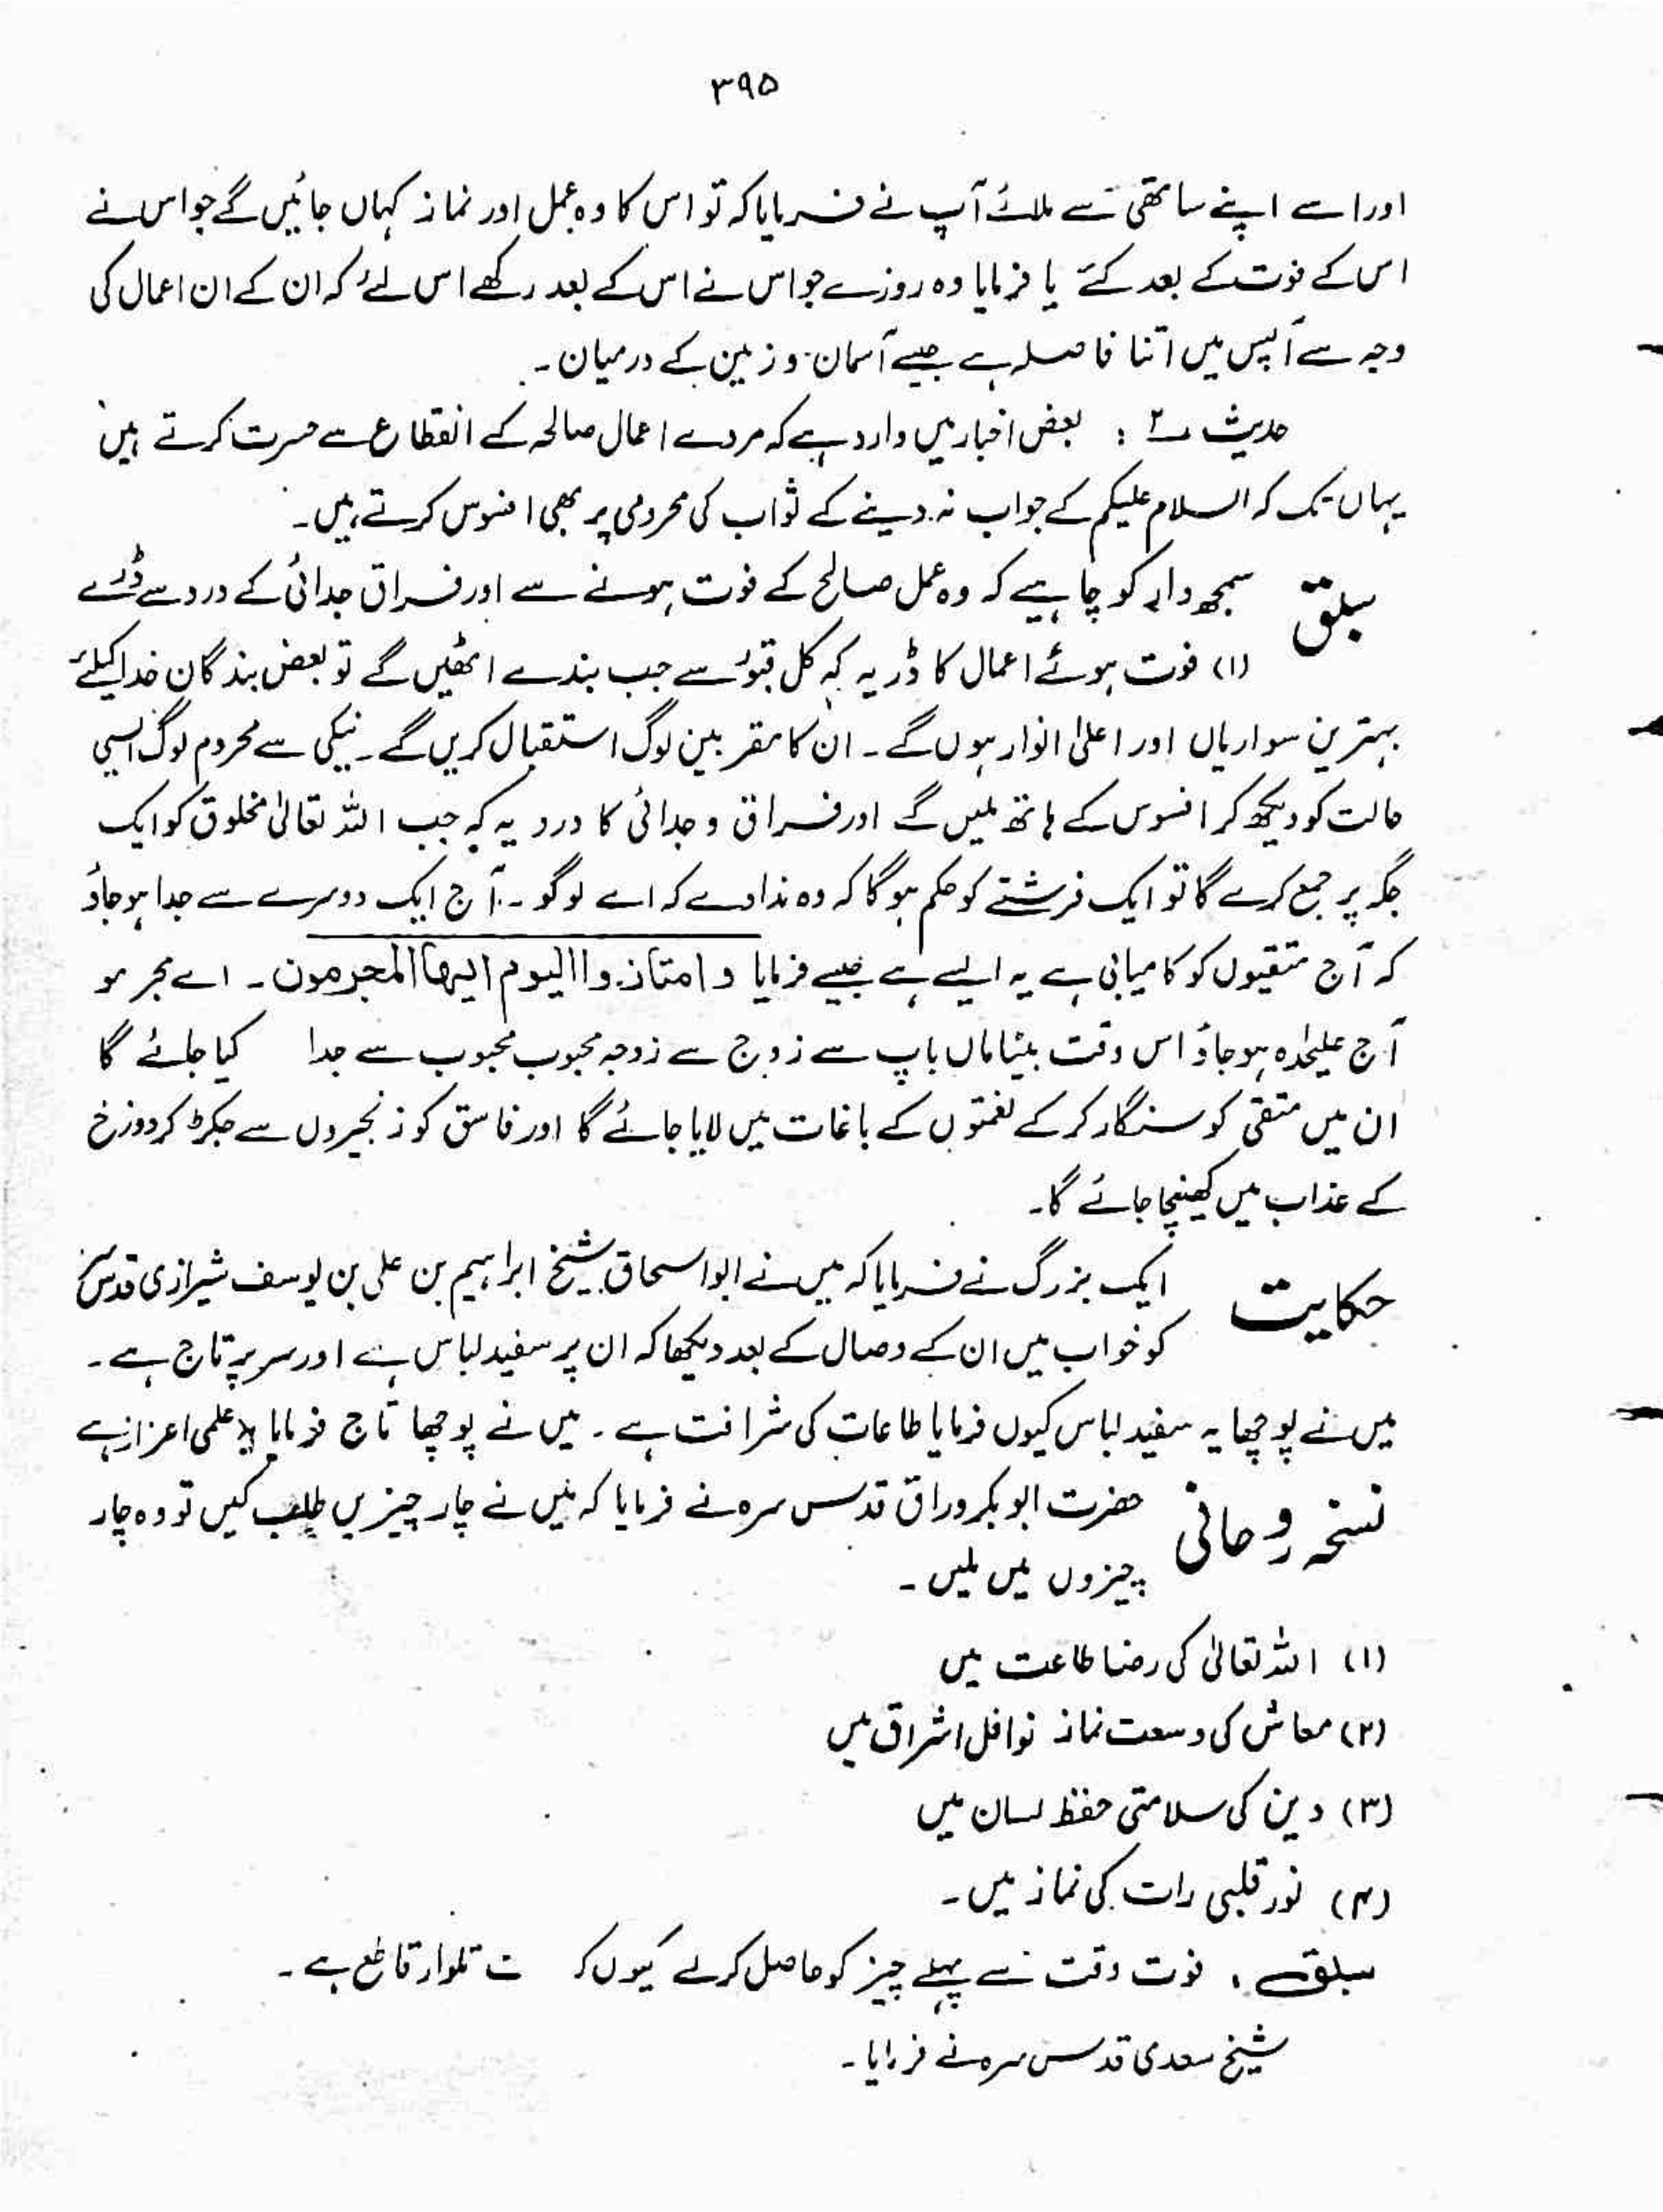 ۳۹۵
اور اسے اپنے ساتھی سے ملائے آپ نے فرمایا کہ تو اس کا وہ عمل اور نماز کہاں جائیں گے جو اس نے
اس کے فوت کے بعد کئے یا فرمایا وہ روزے جو اس نے اس کے بعد رکھے اس لئے کہ ان کے ان اعمال کی
وجہ سے آپس میں اتنا فاصلہ ہے جیسے آسمان و زمین کے درمیان ۔
حدیث ۲ : بعض اخبار میں وارد ہے کہ مردے اعمال صالحہ کے انقطاع سے حسرت کرتے ہیں
یہاں تک کہ السلام علیکم کے جواب نہ دینے کے ثواب کی محرومی پر بھی افسوس کرتے ہیں ۔
سبق سمجھ دار کو چاہیے کہ وہ عمل صالح کے فوت ہونے سے اور فراق جدائی کے درد سے ڈرے
(۱) فوت ہوئے اعمال کا ڈر یہ کہ کل قبور سے جب بندے اٹھیں گے تو بعض بندگان خدا کیلئے
بہترین سواریاں اور اعلیٰ انوار ہوں گے ۔ ان کا مقربین لوگ استقبال کریں گے ۔ نیکی سے محروم لوگ ایسی
حالت کو دیکھ کر افسوس کے ہاتھ ملیں گے اور فراق و جدائی کا درد یہ کہ جب اللہ تعالیٰ مخلوق کو ایک
جگہ پر جمع کرے گا تو ایک فرشتے کو حکم ہوگا کہ وہ ندا دے کہ اے لوگو ۔ آج ایک دوسرے سے جدا ہو جاؤ
کہ آج متقیوں کو کامیابی ہے یہ ایسے ہے جیسے فرمایا وامتازوا الیوم ایہا المجرمون ۔ اے مجرمو
آج علیحدہ ہو جاؤ اس وقت بیٹا ماں باپ سے زوج سے زوجہ محبوب محبوب سے جدا کیا جائے گا
ان میں متقی کو سنگار کر کے نعمتوں کے باغات میں لایا جائے گا اور فاسق کو زنجیروں سے جکڑ کر دوزخ
کے عذاب میں کھینچا جائے گا ۔
حکایت ایک بزرگ نے فرمایا کہ میں نے ابو اسحاق شیخ ابراہیم بن علی بن یوسف شیرازی قدس سرہ
کو خواب میں ان کے وصال کے بعد دیکھا کہ ان پر سفید لباس ہے اور سر پر تاج ہے ۔
میں نے پوچھا یہ سفید لباس کیوں فرمایا طاعات کی شرافت ہے ۔ میں نے پوچھا تاج فرمایا یہ علمی اعزاز ہے
نسخہ روحانی حضرت ابو بکر وراق قدس سرہ نے فرمایا کہ میں نے چار چیزیں طلب کیں تو وہ چار
چیزوں میں ملیں ۔
(۱) اللہ تعالیٰ کی رضا طاعت میں
(۲) معاش کی وسعت نماز نوافل اشراق میں
(۳) دین کی سلامتی حفظ لسان میں
(۴) نور قلبی رات کی نماز میں ۔
سبق ، فوت وقت سے پہلے چیز کو حاصل کرلے کیوں کہ ت تلوار قاطع ہے ۔
شیخ سعدی قدس سرہ نے فرمایا ۔